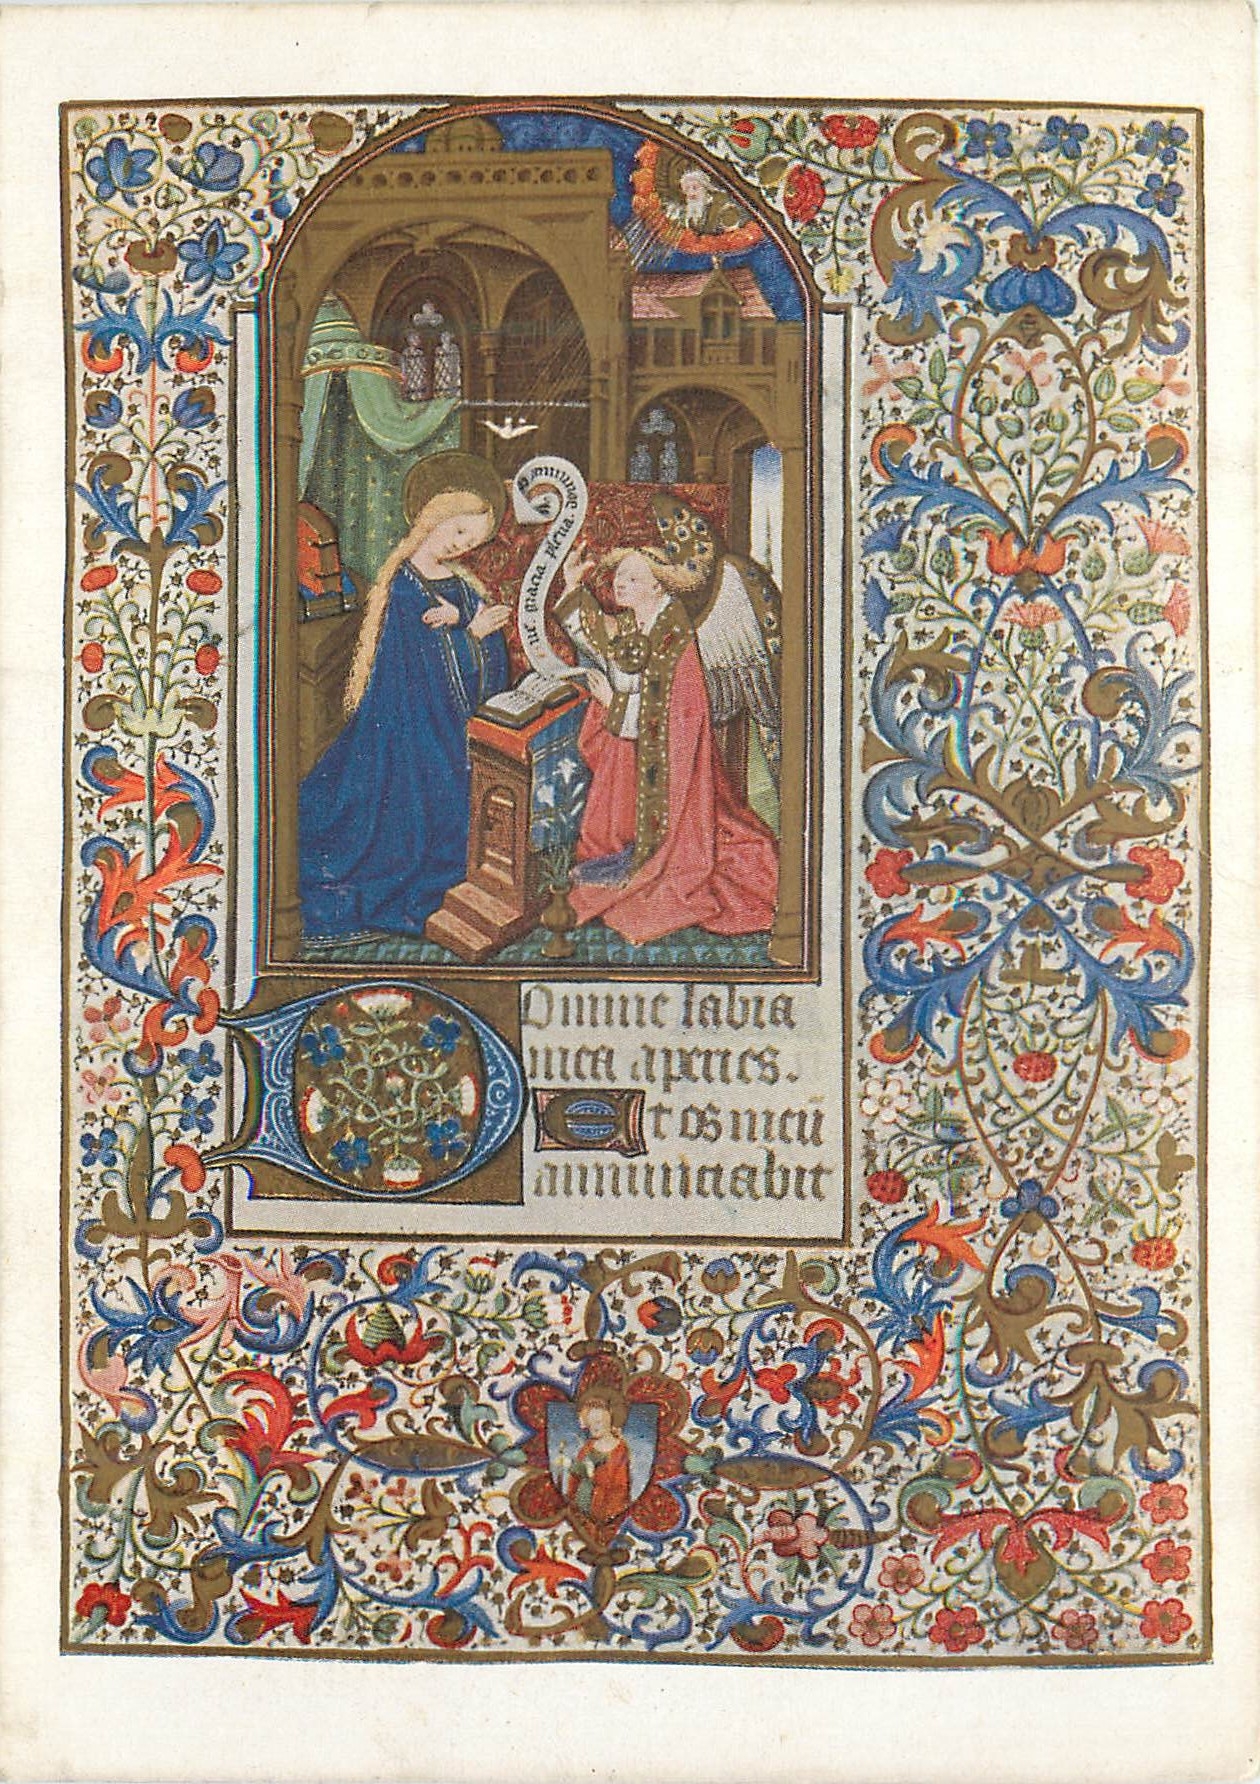 aue gracia plena. dominus
Domine labia
mea aperies.
Et os meū
annunciabit